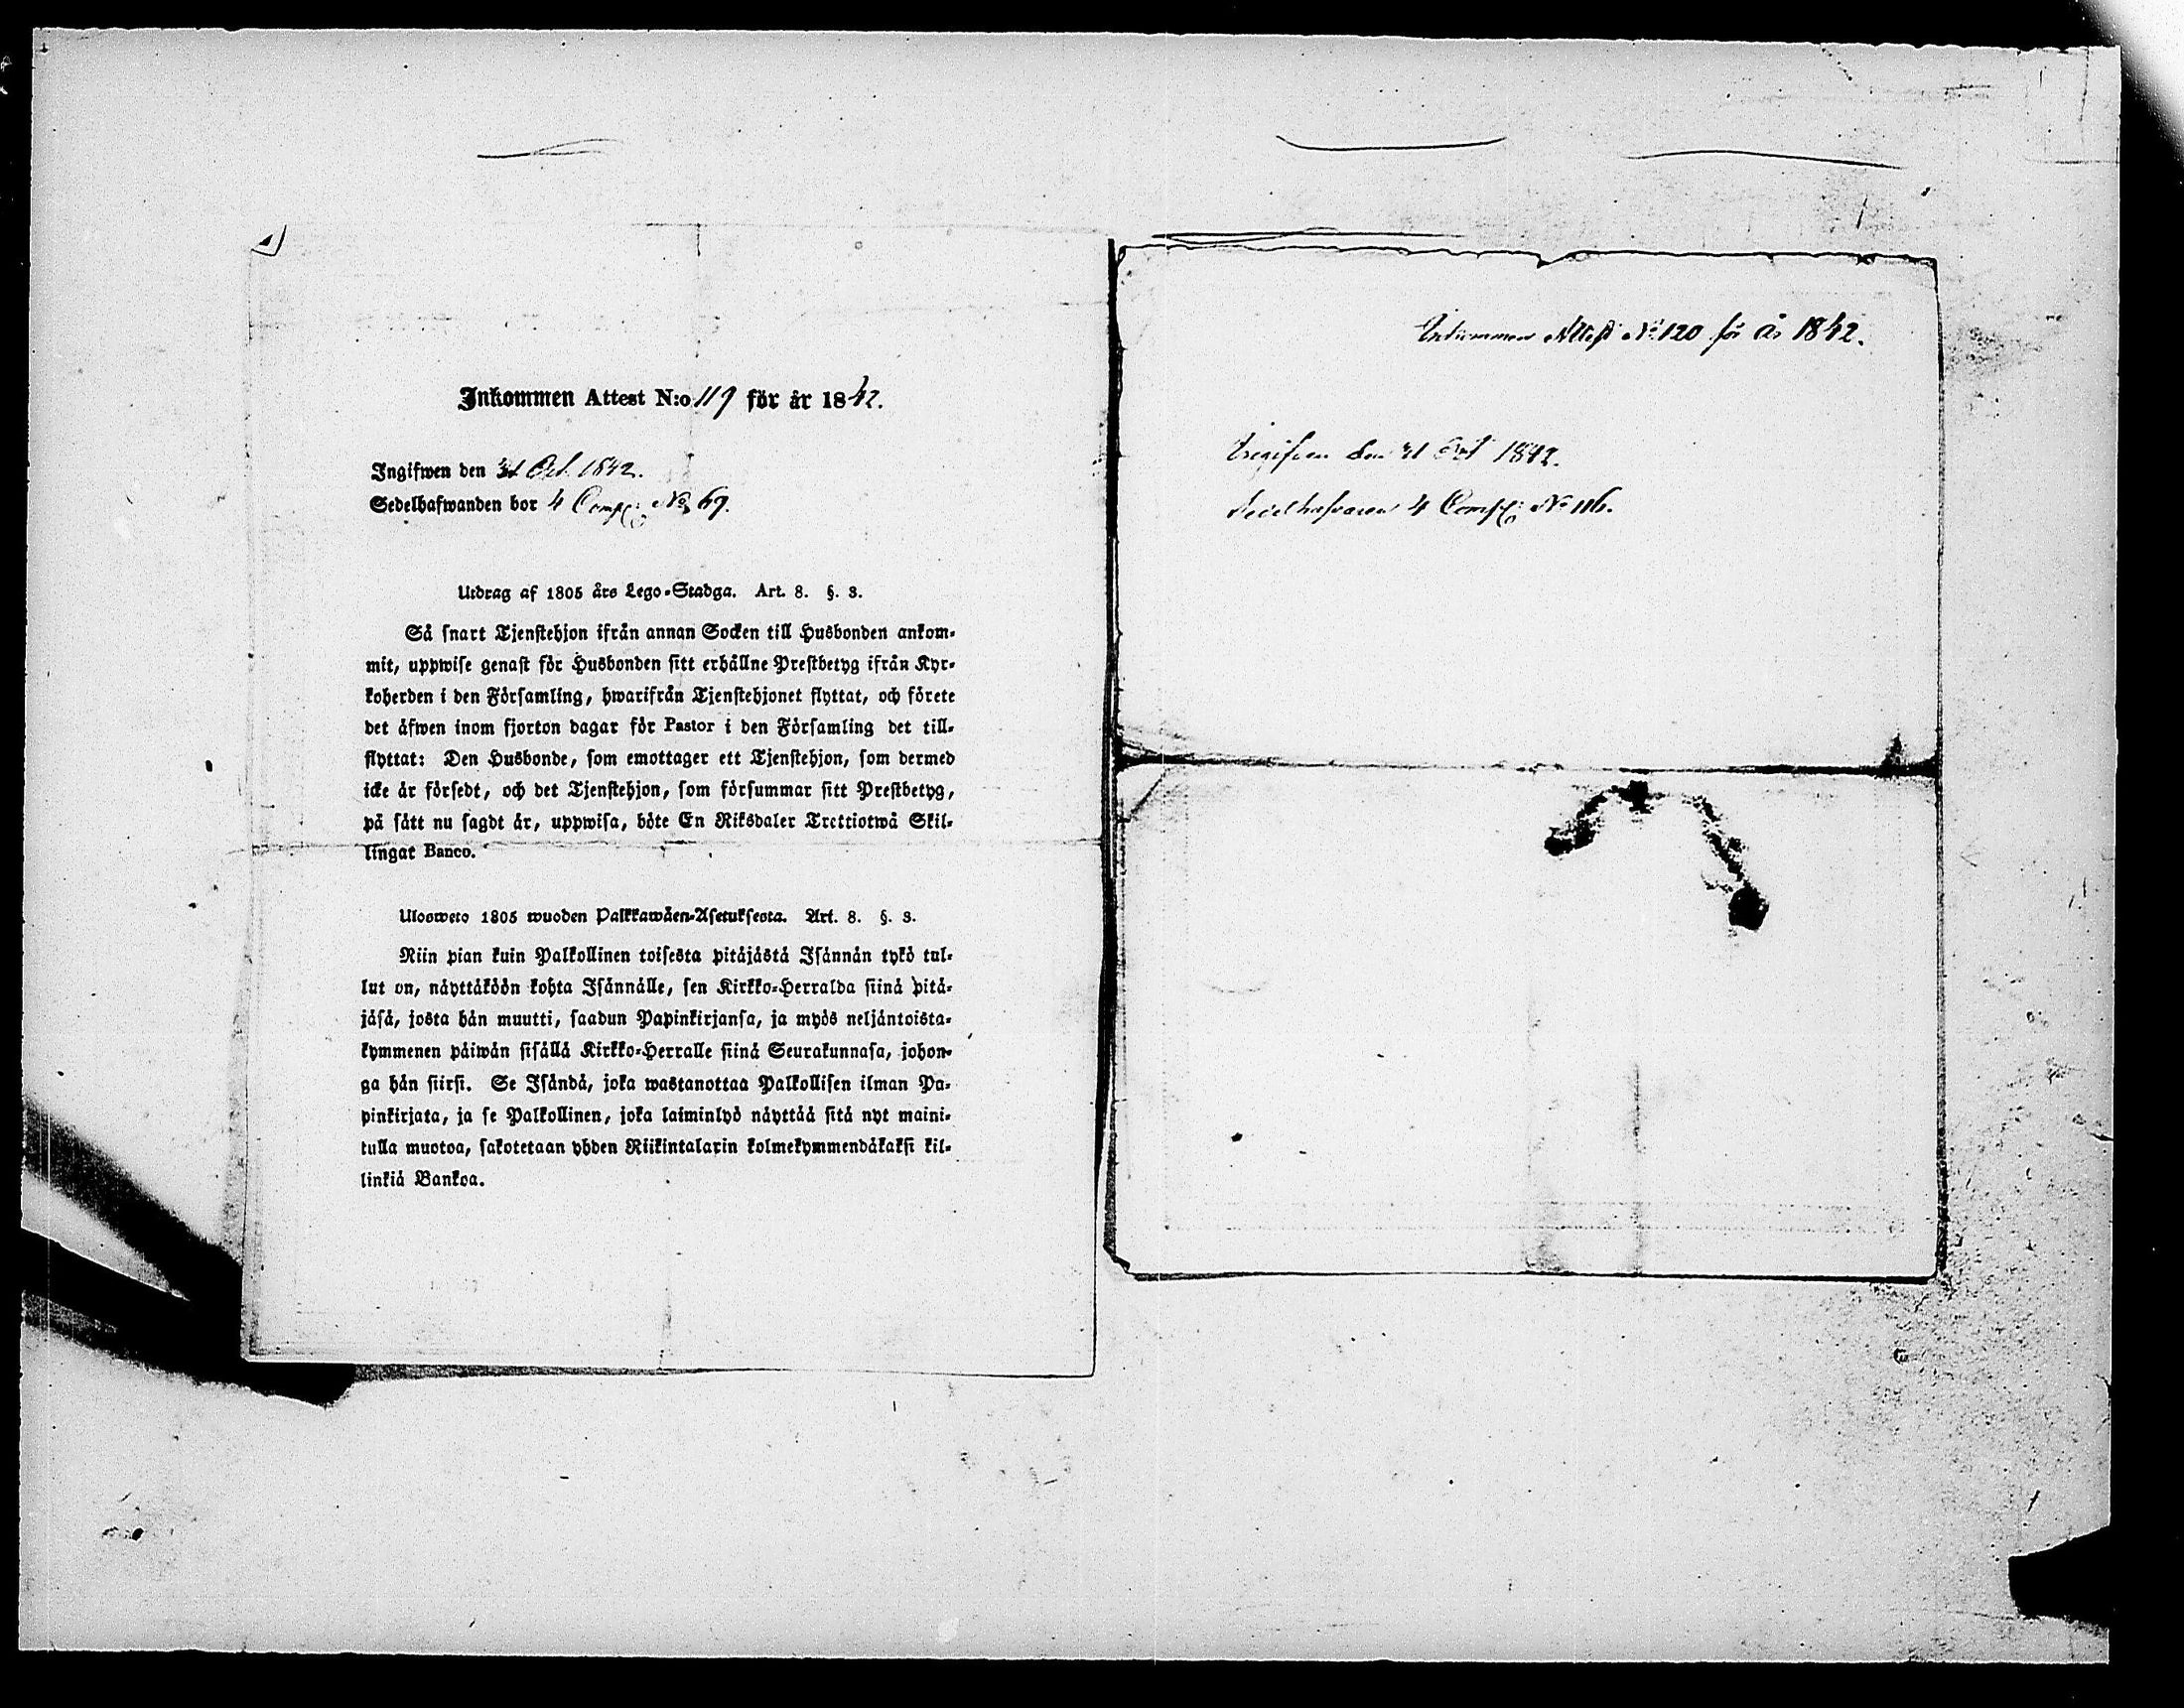 Inkommen Attest N:o 119 för år 1842.
Ingifwen den 31 Oct. 1842.
Sedelhafwanden bor 4 Comp: No 69.
Utdrag af 1805 års Lego-Stadga. Art. 8. §. 3.
Så snart Tjenstehjon ifrån annan Socken till Husbonden ankom-
mit, uppwise genast för Husbonden sitt erhållne Prestbetyg ifrån Kyr-
koherden i den Församling, hwarifrån Tjenstehjonet flyttat, och förete
det äfwen inom fjorton dagar för Pastor i den Församling det till-
flyttat: Den Husbonde, som emottager ett Tjenstehjon, som dermed
icke är försedt, och det Tjenstehjon, som försummar sitt Prestbetyg,
på sätt nu sagdt är, uppwisa, böte En Riksdaler Trettiotwå Skil-
lingar Banco.
Ulosweto 1805 wuoden Palkkawäen-Asetuksesta. Art. 8. §. 3.
Niin pian kuin Palkollinen toisesta pitäjästä Isännän tykö tul-
lut on, näyttäköön kohta Isännälle, sen Kirkko-Herralda siinä pitä-
jäsä, josta hän muutti, saadun Papinkirjansa, ja myös neljäntoista-
kymmenen päiwän sisällä Kirkko-Herralle siinä Seurakunnasa, johon-
ga hän siirsi. Se Isändä, joka wastanottaa Palkollisen ilman Pa-
pinkirjata, ja se Palkollinen, joka laiminlyö näyttää sitä nyt maini-
tulla muotoa, sakotetaan yhden Riikintalarin kolmekymmendäkaksi kil-
linkiä Bankoa.
Inkommen Attest No 120 för år 1842.
Ingifven den 31 Oct 1842.
Sedelhafvaren 4 Comp: No 116.